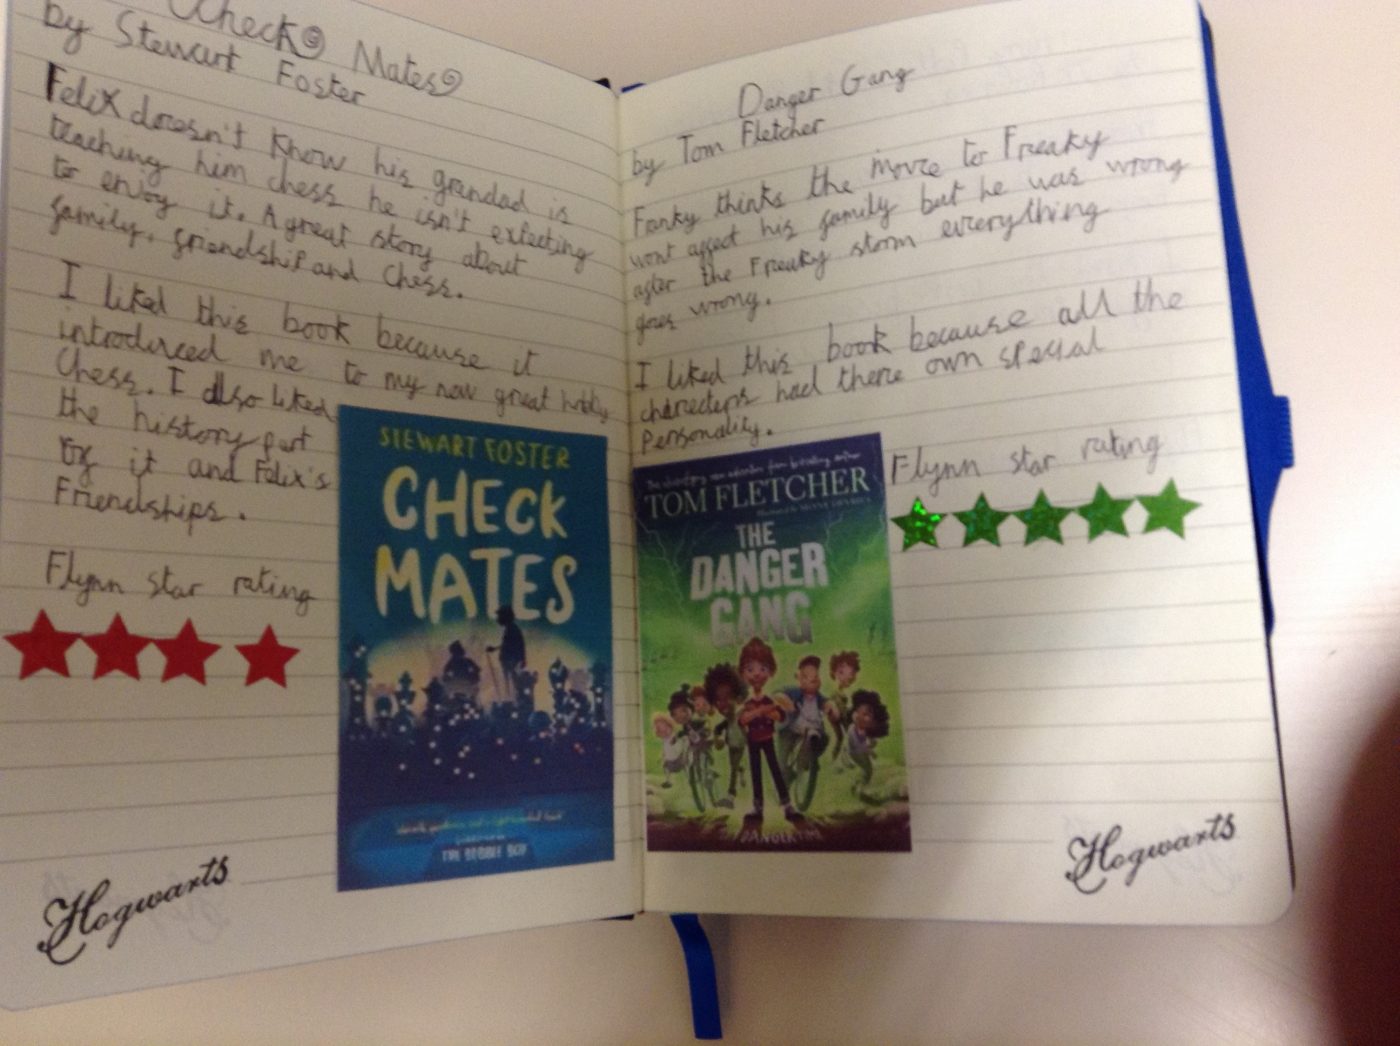 Check Mates
by Stewart Foster
Felix doesn't know his grandad is
teaching him chess he isn't exfecting
to enjoy it. A great story about
family, friendship and Chess.
I liked this book because it
introduced me to my new great hobby
Chess. I also liked
the history part
of it and Felix's
Friendships.
Flynn star rating
STEWART FOSTER
CHECK
MATES
THE BUBBLE BOY
Hogwarts
Danger Gang
by Tom Fletcher
Franky thinks the move to Freaky
wont affect his family but he was wrong
after the Freaky storm everything
goes wrong.
I liked this book because all the
charecters had there own special
Personality.
Flynn star rating
TOM FLETCHER
THE
DANGER
GANG
Hogwarts